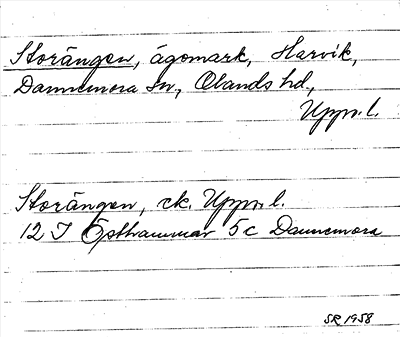 Storängen, ägomark, Harvik,
Dannemora sn, Olands hd,
Uppv. l.
Storängen, ek. Uppv. l.
12 I Östhammar 5c Dannemora
SR 1958